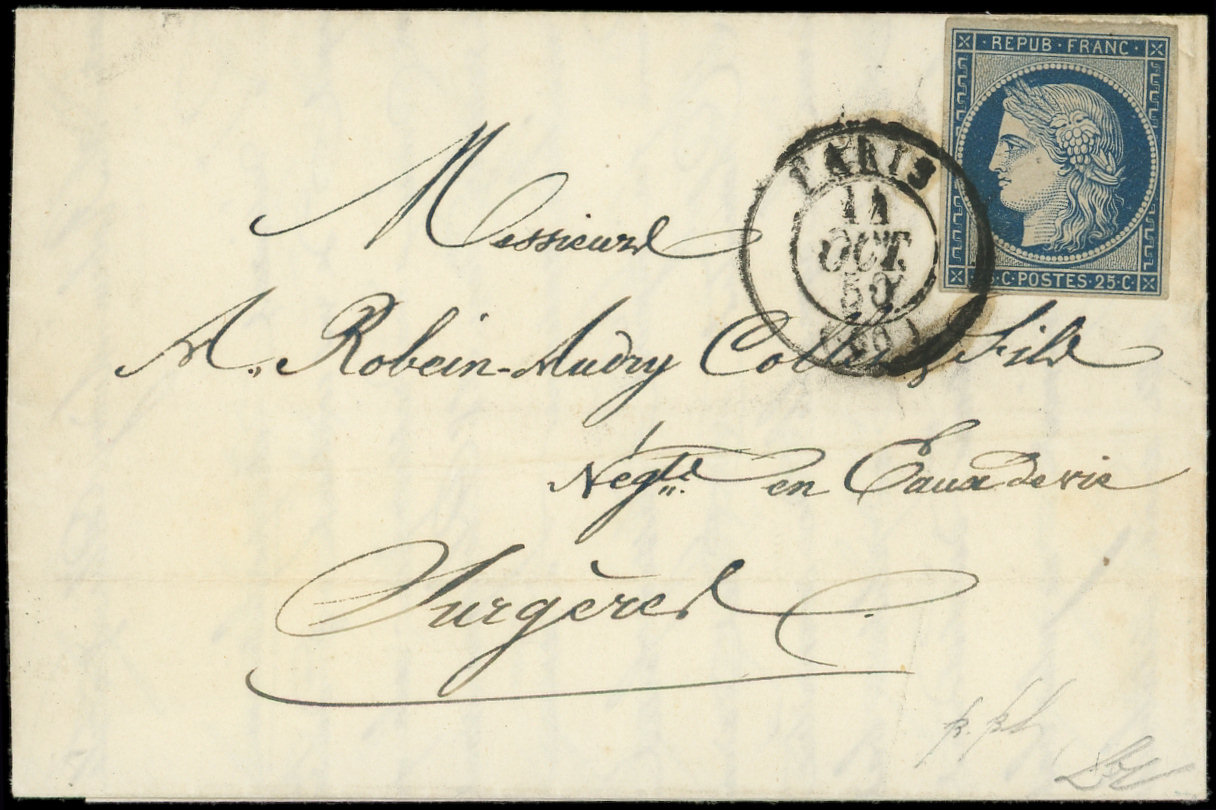 REPUB · FRANC ·
· C · POSTES · 25 · C ·
PARIS
14
OCT.
50
(60)
Messieurs
M.. Robein-Audry Collin & Fils
Négts. en Eaux de vie
Surgères
p.pl